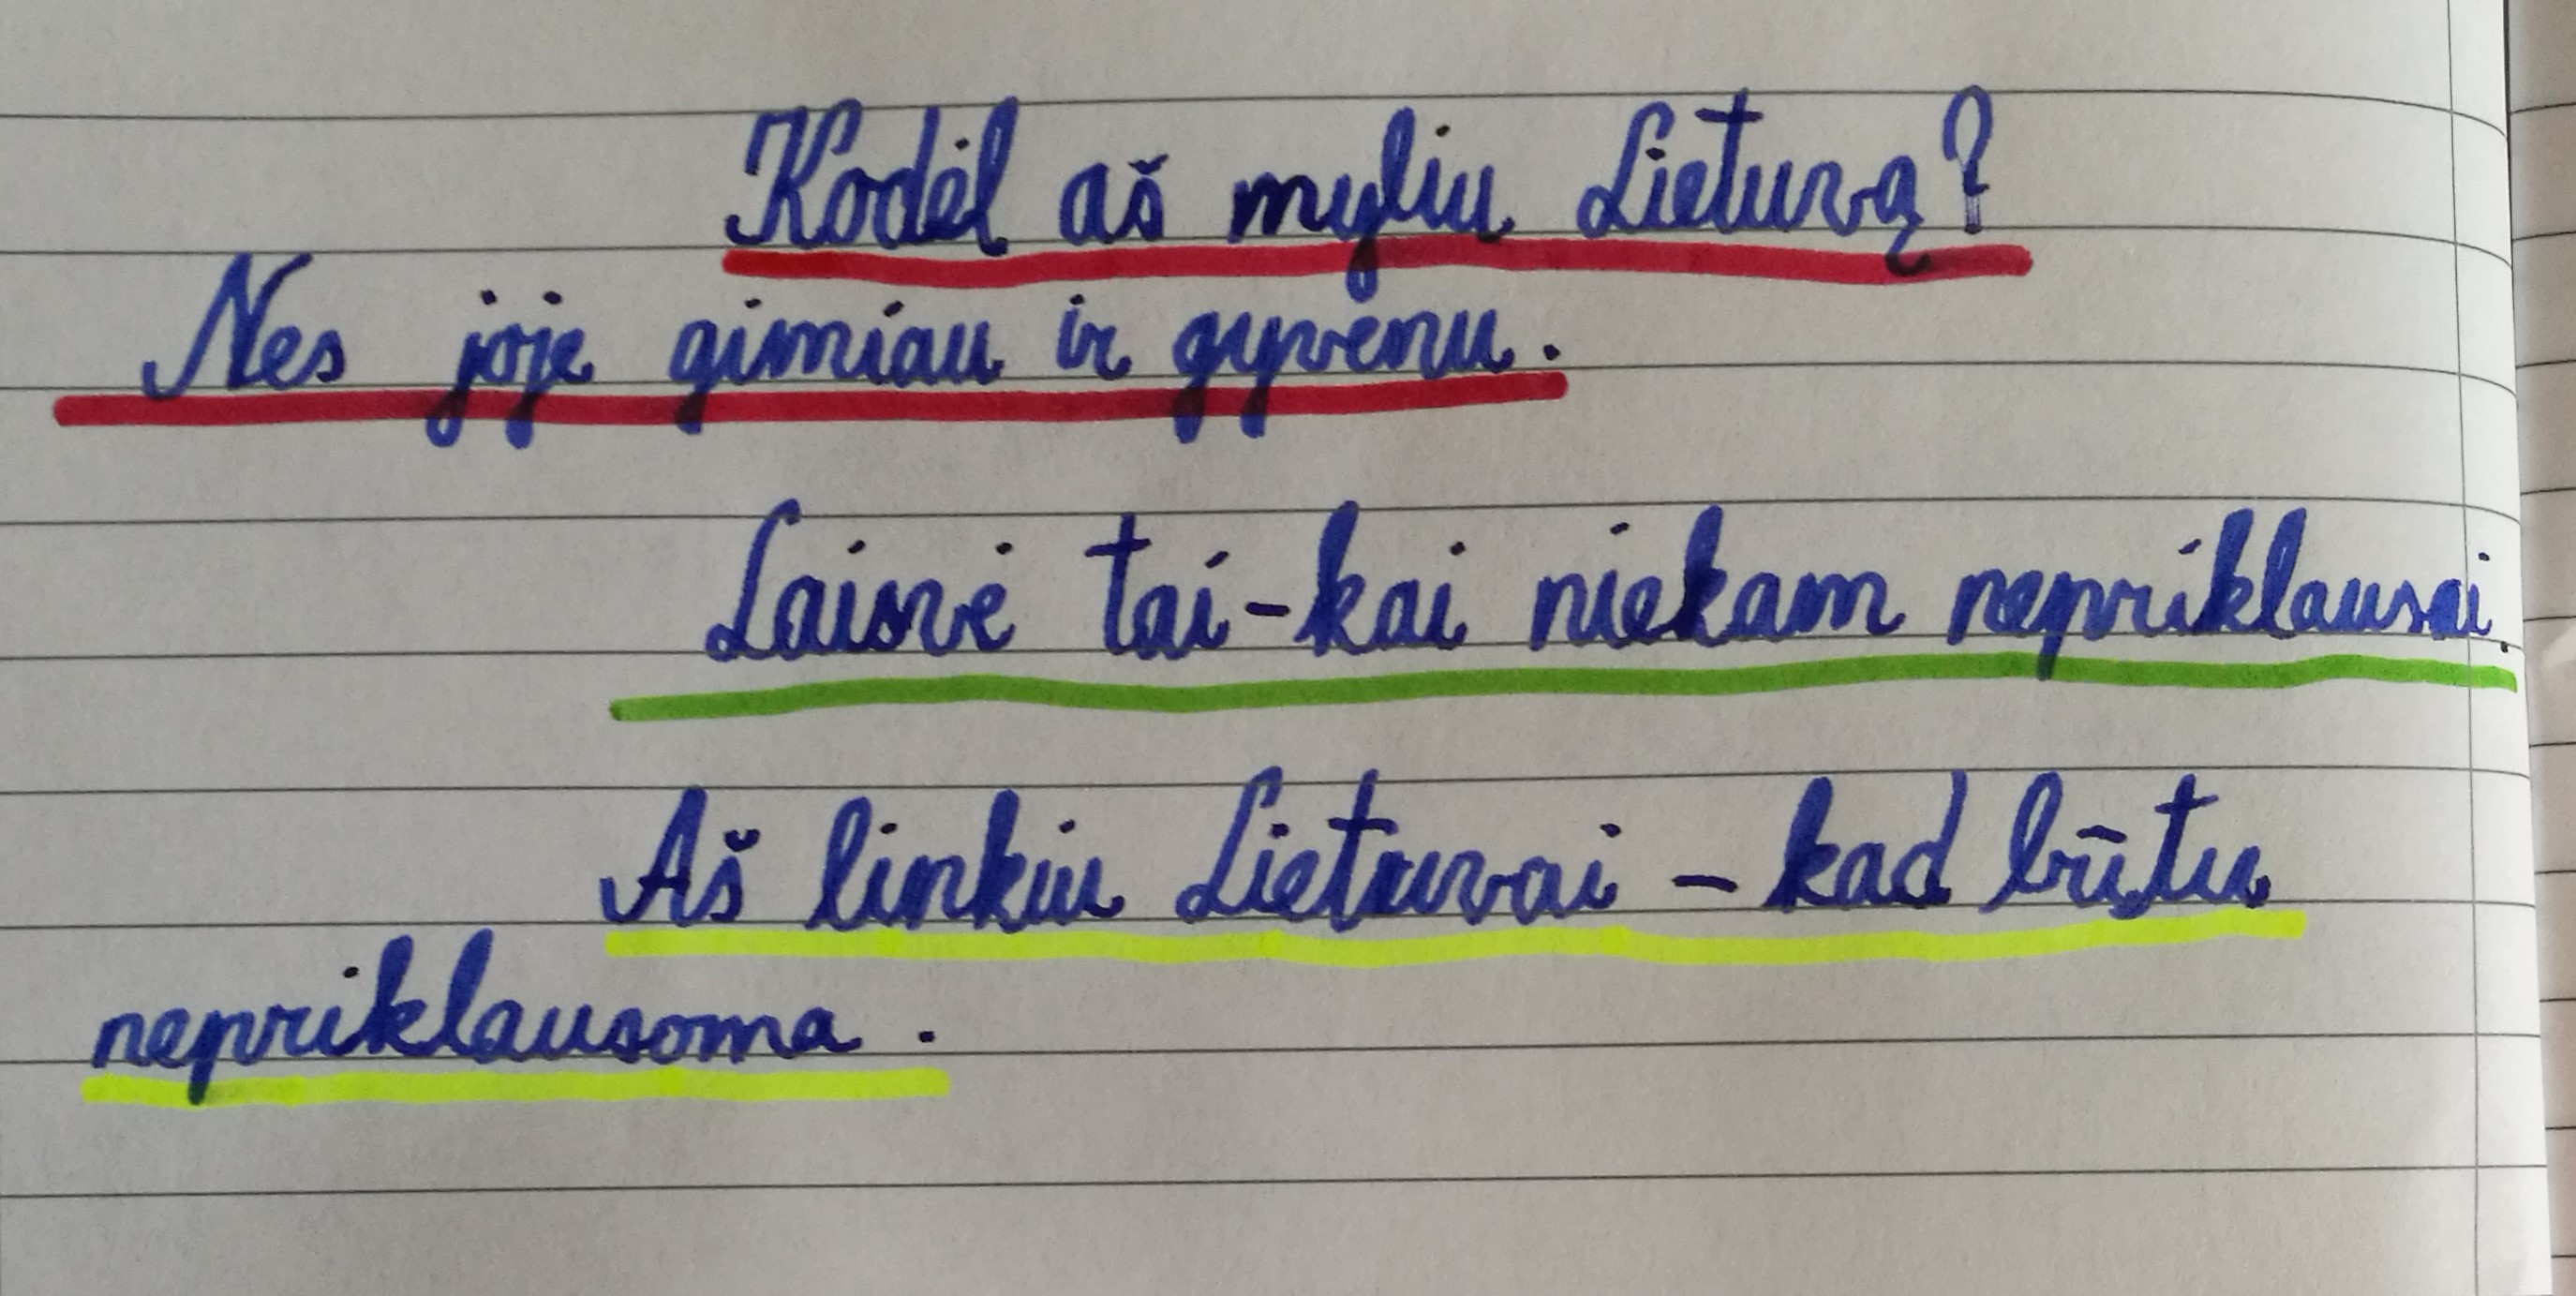 Kodėl aš myliu Lietuvą?
Nes joje gimiau ir gyvenu.
Laisvė tai-kai niekam nepriklausai.
Aš linkiu Lietuvai - kad būtu
nepriklausoma.